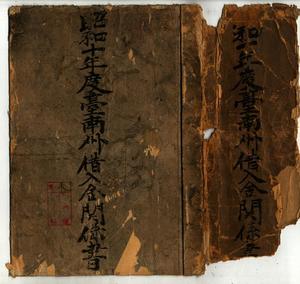 昭和十年度臺南州借入金關係書
和年度臺南州借入金關係書